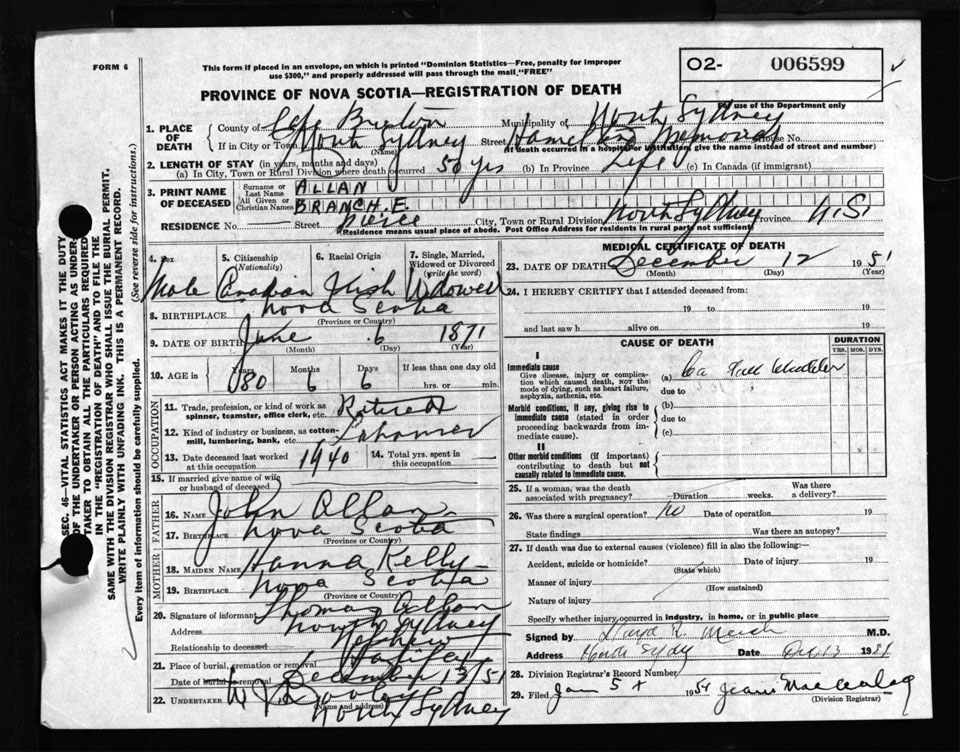 FORM 6
This form if placed in an envelope, on which is printed "Dominion Statistics—Free, penalty for improper
use $300," and properly addressed will pass through the mail "FREE"
O2- 006599
PROVINCE OF NOVA SCOTIA—REGISTRATION OF DEATH
For use of the Department only
1. PLACE OF DEATH
County of Cape Breton Municipality of North Sydney
If in City or Town North Sydney Street Hamilton Memorial House No.
(Name) (If death occurred in a hospital or institution, give the name instead of street and number)
2. LENGTH OF STAY (in years, months and days)
(a) In City, Town or Rural Division where death occurred 50 yrs (b) In Province Life (c) In Canada (if immigrant)
3. PRINT NAME OF DECEASED
Surname or Last Name ALLAN
All Given or Christian Names BRANCH. E.
RESIDENCE No. Street Pierce City, Town or Rural Division North Sydney Province N.S.
(Residence means usual place of abode. Post Office Address for residents in rural part not sufficient)
4. Sex 5. Citizenship (Nationality) 6. Racial Origin 7. Single, Married, Widowed or Divorced (write the word)
Male Canadian Irish Widowed
8. BIRTHPLACE Nova Scotia
(Province or Country)
9. DATE OF BIRTH June 6 1871
(Month) (Day) (Year)
10. AGE in Years Months Days If less than one day old
80 6 6 hrs. or min.
OCCUPATION
11. Trade, profession, or kind of work as spinner, teamster, office clerk, etc. Retired
12. Kind of industry or business, as cotton-mill, lumbering, bank, etc.
13. Date deceased last worked at this occupation 1940
14. Total yrs. spent in this occupation
15. If married give name of wife or husband of deceased
FATHER
16. NAME John Allan
17. BIRTHPLACE Nova Scotia
(Province or Country)
MOTHER
18. MAIDEN NAME Hanna Kelly
19. BIRTHPLACE Nova Scotia
(Province or Country)
20. Signature of informant Thomas Allan
Address North Sydney
Relationship to deceased Nephew
21. Place of burial, cremation or removal
Date of burial or removal December 13/51
22. UNDERTAKER W J
(Name and address) North Sydney
MEDICAL CERTIFICATE OF DEATH
23. DATE OF DEATH December 12 1951
(Month) (Day) (Year)
24. I HEREBY CERTIFY that I attended deceased from:
19 to 19
and last saw h alive on 19
CAUSE OF DEATH
DURATION
YRS. MOS. DYS.
I
Immediate cause
Give disease, injury or complication which caused death, NOT the mode of dying, such as heart failure, asphyxia, asthenia, etc.
(a) Ca Gall Bladder
due to
Morbid conditions, if any, giving rise to immediate cause (stated in order proceeding backwards from immediate cause).
(b)
due to
(c)
II
Other morbid conditions (if important) contributing to death but not causally related to immediate cause.
25. If a woman, was the death associated with pregnancy? Duration weeks. Was there a delivery?
26. Was there a surgical operation? No Date of operation 19
State findings Was there an autopsy?
27. If death was due to external causes (violence) fill in also the following:—
Accident, suicide or homicide? Date of injury 19
(State which)
Manner of injury
(How sustained)
Nature of injury
Specify whether injury occurred in industry, in home, or in public place
Signed by R. M.D.
Address North Sydney Date Dec 13 1951
28. Division Registrar's Record Number
29. Filed, Jan 5 19
(Division Registrar)
SEC. 46—VITAL STATISTICS ACT MAKES IT THE DUTY
OF THE UNDERTAKER OR PERSON ACTING AS UNDER-
TAKER TO OBTAIN ALL THE PARTICULARS REQUIRED
IN THE "REGISTRATION OF DEATH" AND TO FILE THE
SAME WITH THE DIVISION REGISTRAR WHO SHALL ISSUE THE BURIAL PERMIT.
WRITE PLAINLY WITH UNFADING INK. THIS IS A PERMANENT RECORD.
Every item of information should be carefully supplied. (See reverse side for instructions.)